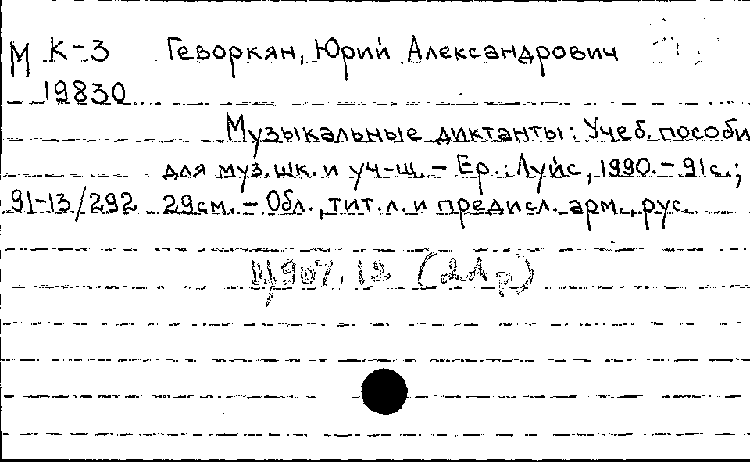 М К-3 Геворкян, Юрий Александрович
19830
Музыкальные диктанты: Учеб. пособи
для муз. шк. и уч-щ. – Ер.: Луйс, 1990. – 91с.;
91-13/292 29см. – Обл., тит. л. и предисл. арм., рус.
Щ907.12